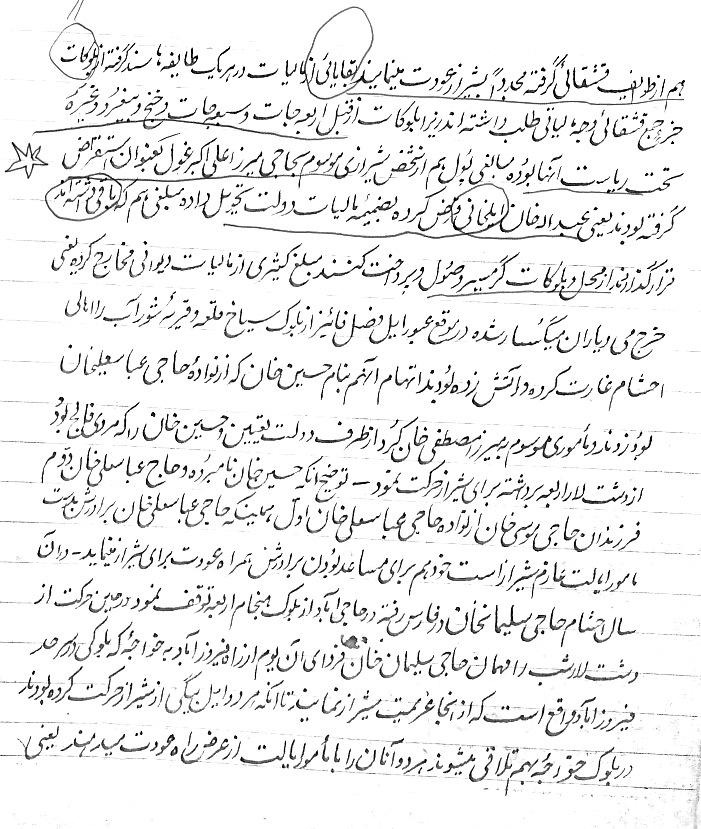 هم از طوایف قشقائی گرفته مجدداً بشیراز عودت مینمایند بقایائی از مالیات در هر یک طایفه ها سند گرفته از بلوکات
خرج جمع قشقائی وجه مالیاتی طلب داشته اند زیرا بلوکات از قبیل اربعه جات و سبعه جات و خنج و بیغرد و غیره
تحت ریاست آنها بوده مبالغی پول هم از شخص شیرازی موسوم بحاجی میرزا علی اکبر غول بعنوان استقراض
گرفته بودند یعنی عبداله خان ایلخانی قرض کرده بضمیمه مالیات دولت تحویل داده مبلغی هم که باقی داشته اند
قرار گذارند از محل بلوکات گرمسیر وصول و پرداخت کنند مبلغ کثیری از مالیات دیوانی مخارج کرده یعنی
خرج می و یاران میگسار شده در موقع عبور ایل فصل پائیز از بلوک سیاخ قلعه و قریه شوراب را اهالی
احشام غارت کرده و آتش زده بودند اتهام آنهم بنام حسین خان که از نواده حاجی عباسعلیخان
بود زدند مأموری موسوم بمیرزا مصطفی خان کرد از طرف دولت تعیین و حسین خان را که مردی فالجی بود
از دشت لار اربعه برداشته برای شیراز حرکت نمود - توضیح آنکه حسین خان نامبرده و حاج عباسعلی خان دوم
فرزندان حاجی موسی خان از نواده حاجی عباسعلی خان اول بهمینکه حاجی عباسعلی خان برادرش بدست
مامور ایالت عازم شیراز است خود هم برای مساعد بودن برادرش همراه عودت برای شیراز مینماید - در آن
سال احشام حاجی سلیمانخان در فارس رفته در حاجی آباد از بلوک میمنجام اربعه توقف نمود در حین حرکت از
دشت لار شب را مهمان حاجی سلیمان خان فردای آن یوم از راه فیروزآباد به خواجه که بلوکی در سرحد
فیروزآباد واقع است که از آنجا عزیمت شیراز نمایند تا آنکه هر دو ایل بیگی از شیراز حرکت کرده بودند
در بلوک خواجه بهم تلاقی میشوند هر دو آنان را با مأمور ایالت از عرض راه عودت میدهند یعنی